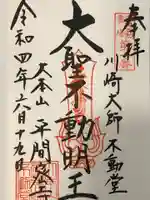 奉拝
川崎大師 不動堂
大聖不動明王
大本山 平間寺
令和四年六月十九日